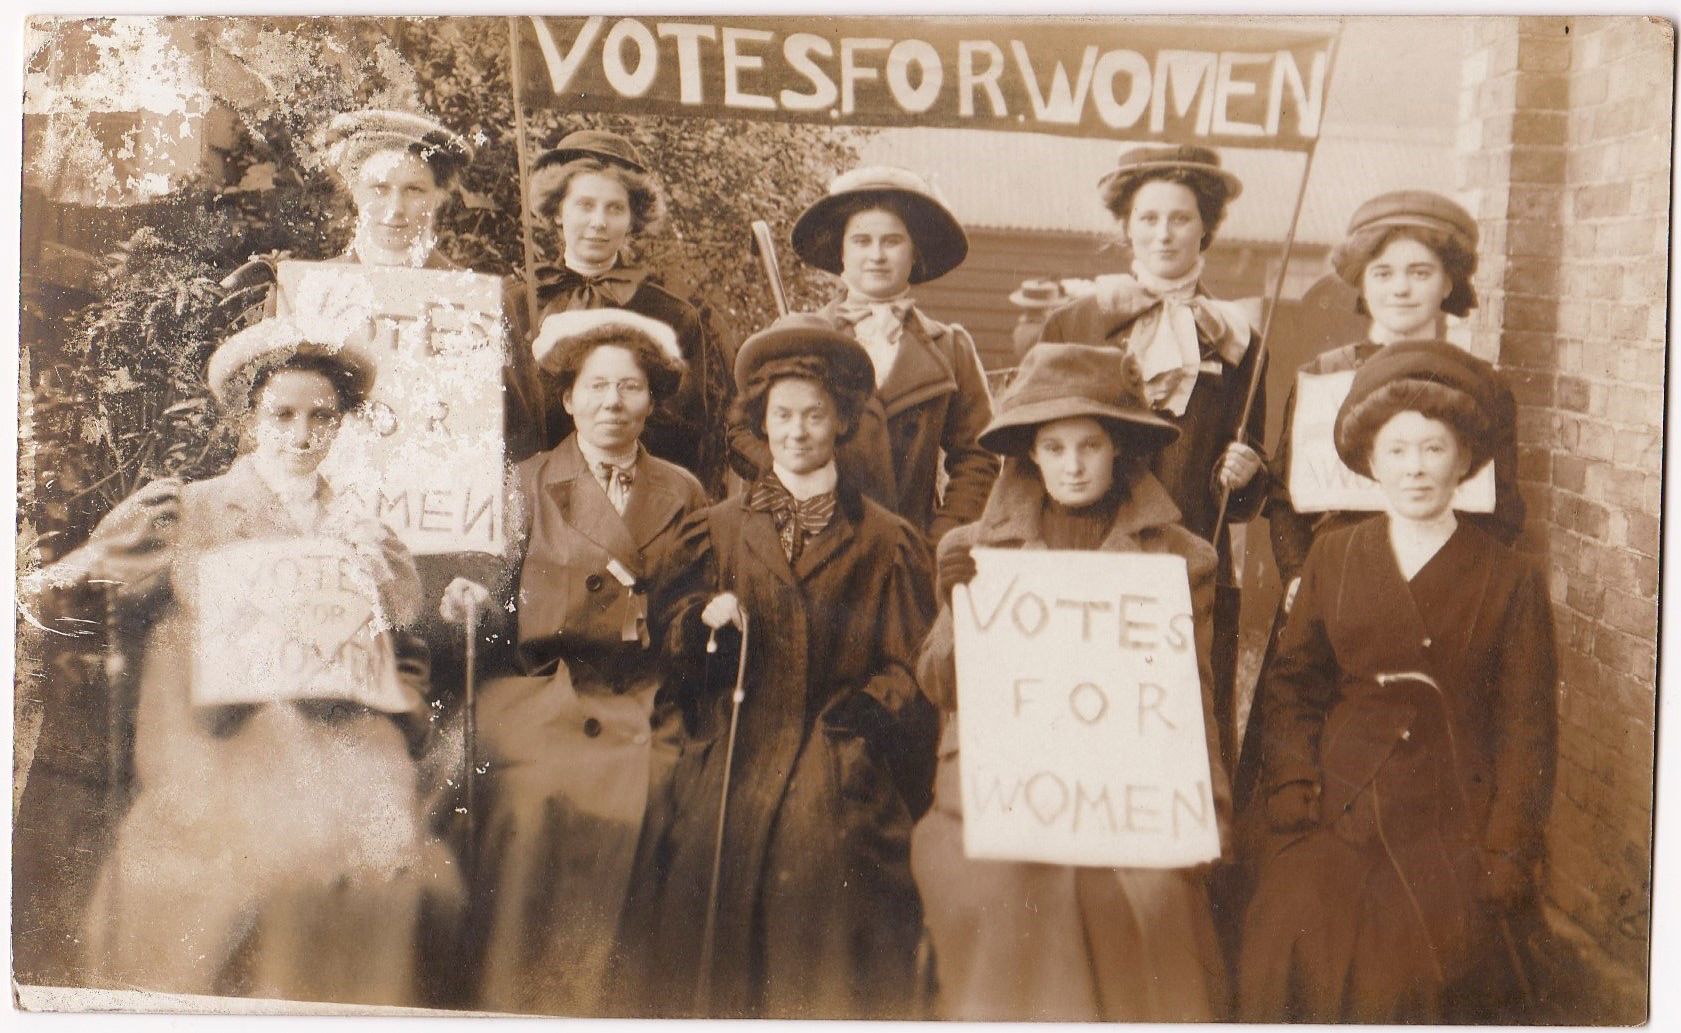 VOTES.FOR.WOMEN
VOTES
OR
OMEN
VOTE
FOR
VOTES
FOR
WOMEN